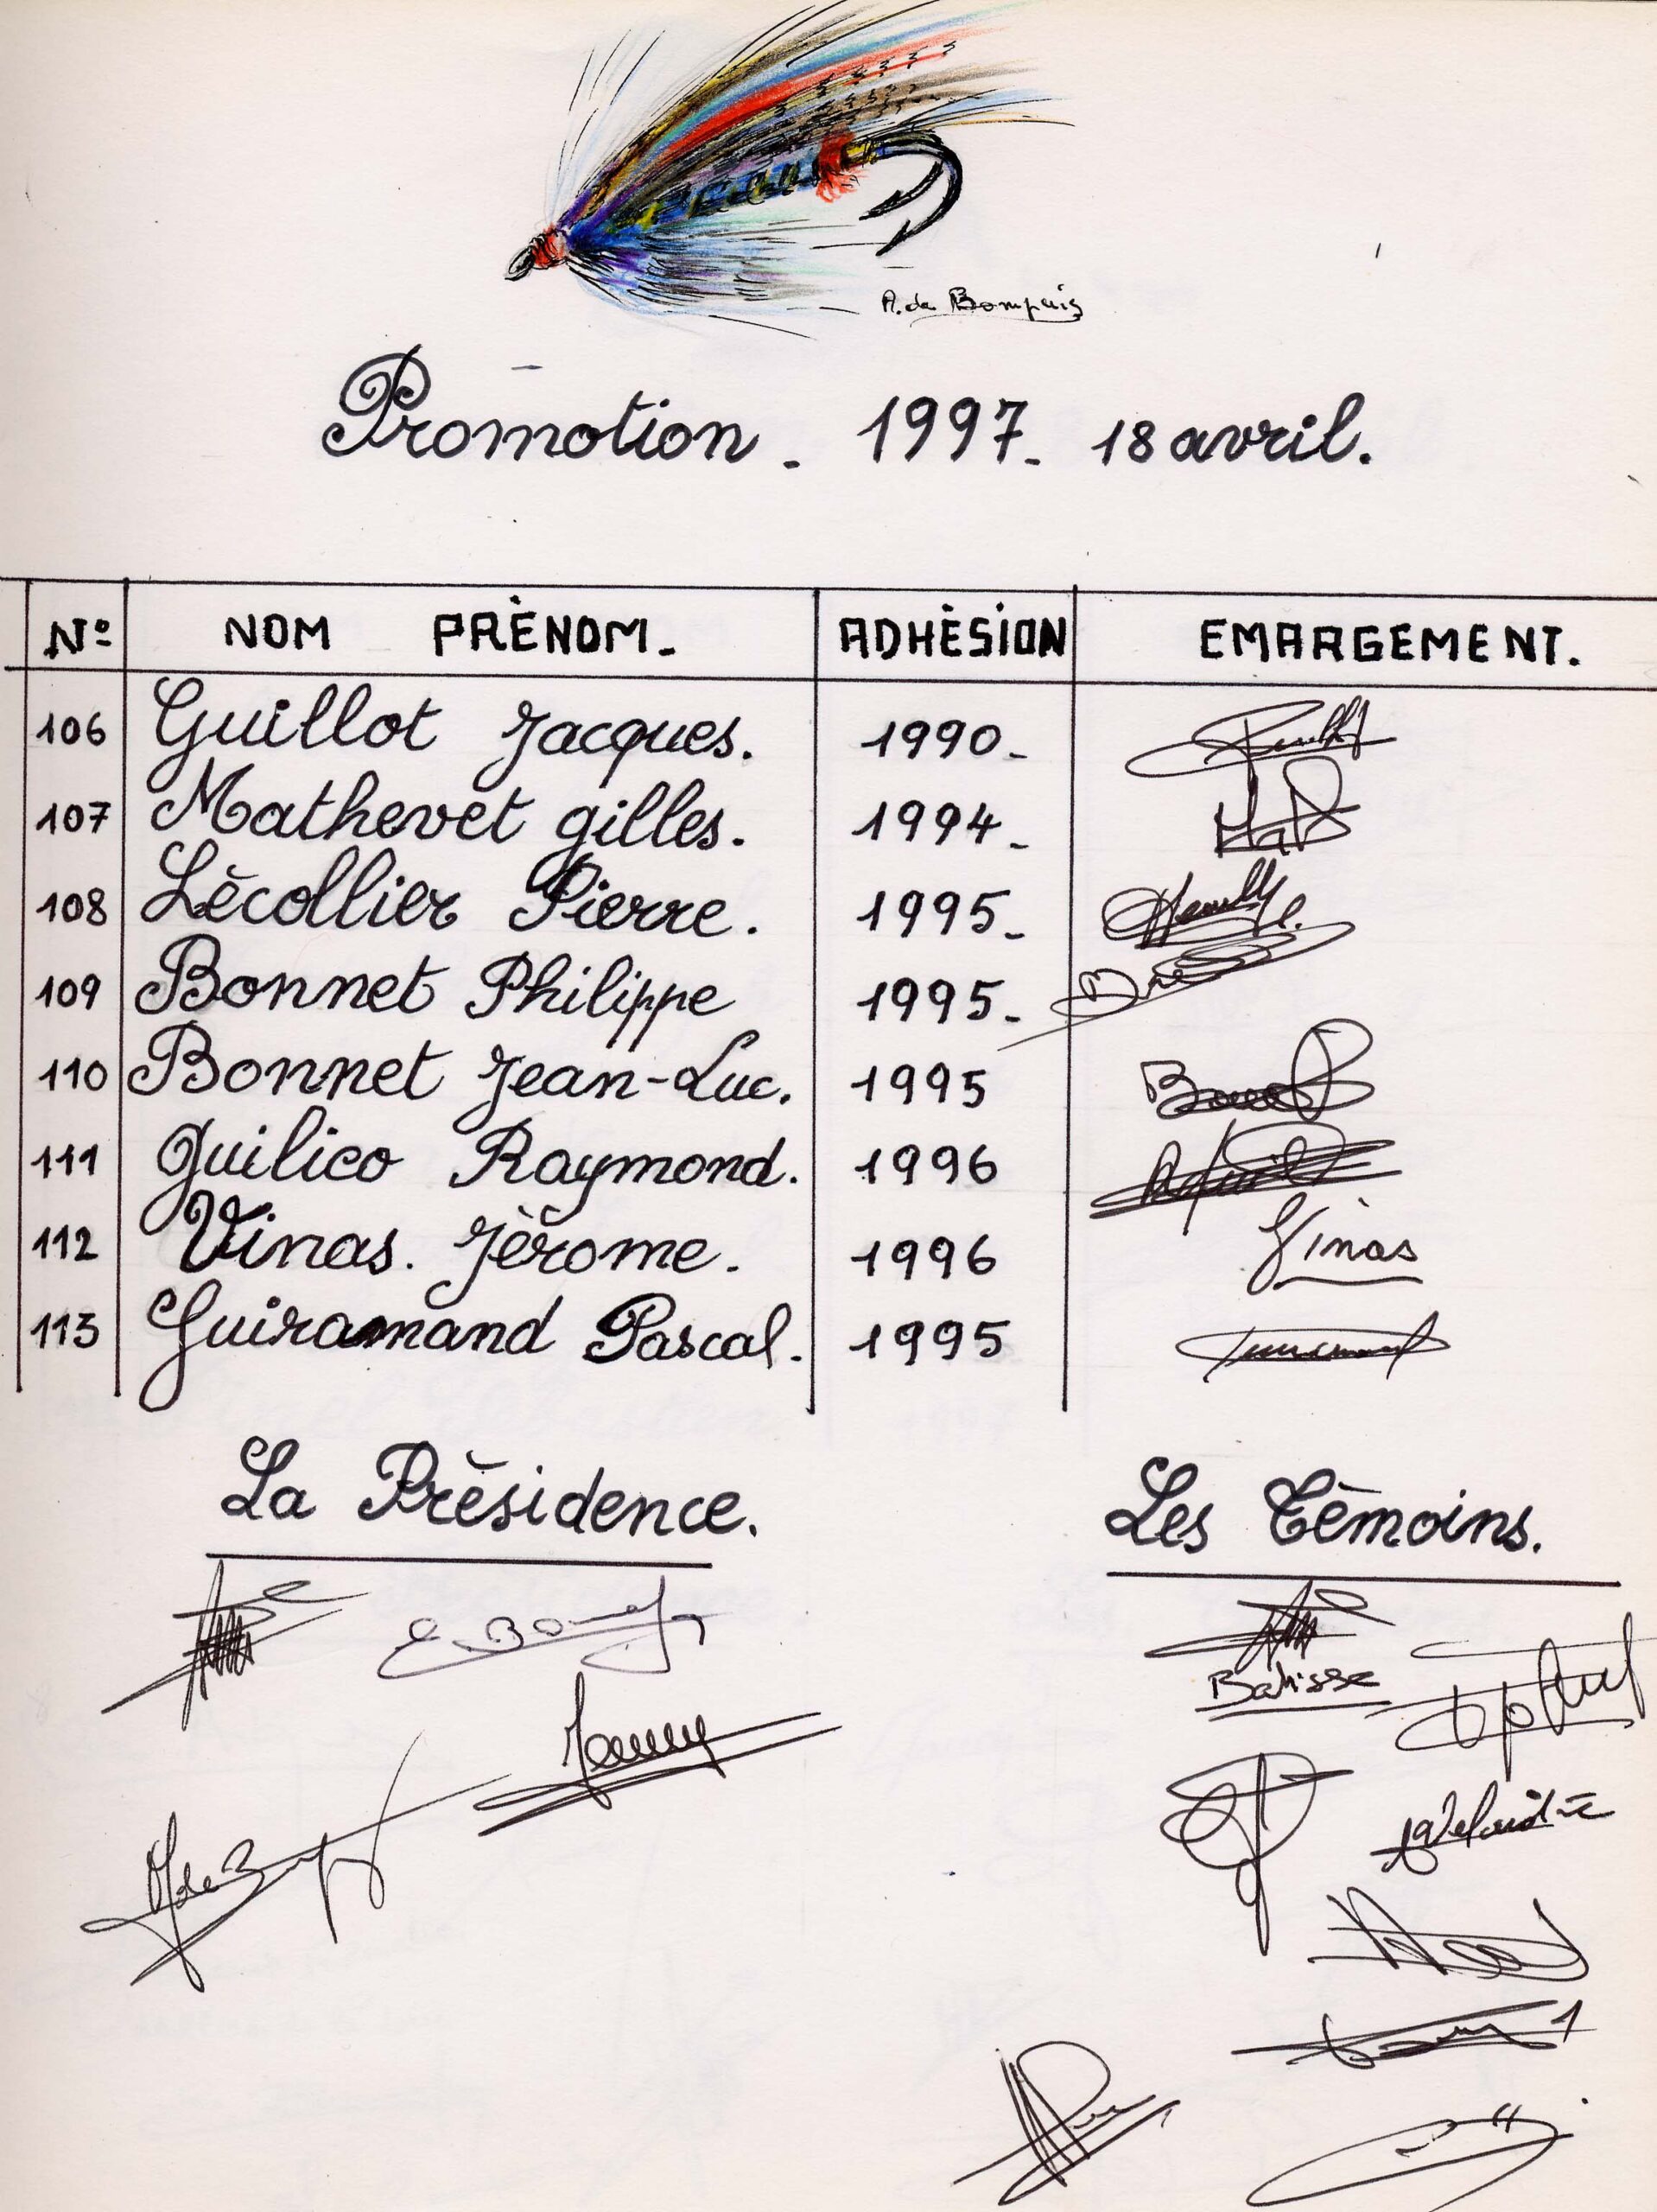 A. de Bompuis
Promotion - 1997 - 18 avril.
N° NOM PRÉNOM - ADHÉSION EMARGEMENT.
106 Guillot Jacques. 1990 -
107 Mathevet gilles. 1994 -
108 Lécollier Pierre. 1995 -
109 Bonnet Philippe 1995 -
110 Bonnet Jean-Luc. 1995
111 Guilico Raymond. 1996
112 Vinas. Jérome. 1996 Vinas
113 Guiramand Pascal. 1995
La Présidence. Les Témoins.
E. Bonnet
Batisse